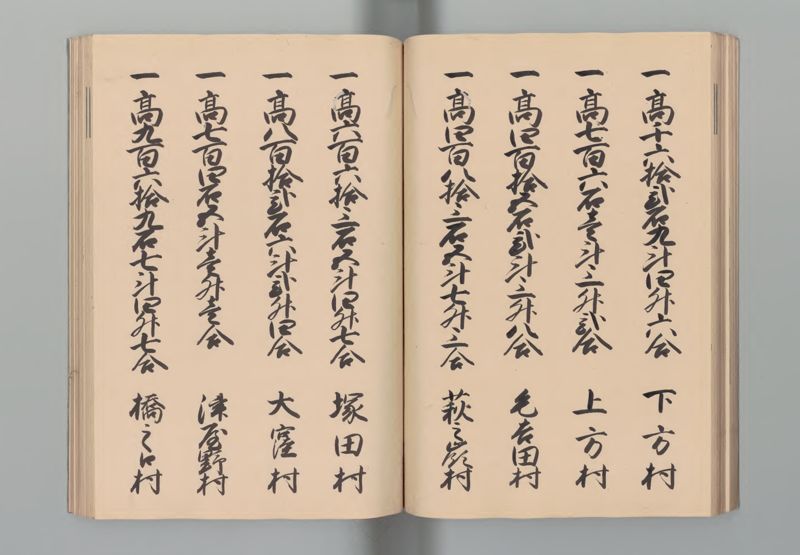 一高千六拾弐石九斗四升六合 下方村
一高七百六石壱斗三升弐合 上方村
一高四百拾五石弐斗三升八合 毛吉田村
一高四百八拾三石五斗七升三合 萩之嶺村
一高六百六拾三石五斗四升七合 塚田村
一高八百拾弐石六斗弐升四合 大窪村
一高七百四石五斗壱升壱合 津屋野村
一高九百六拾九石七斗四升七合 橋之口村